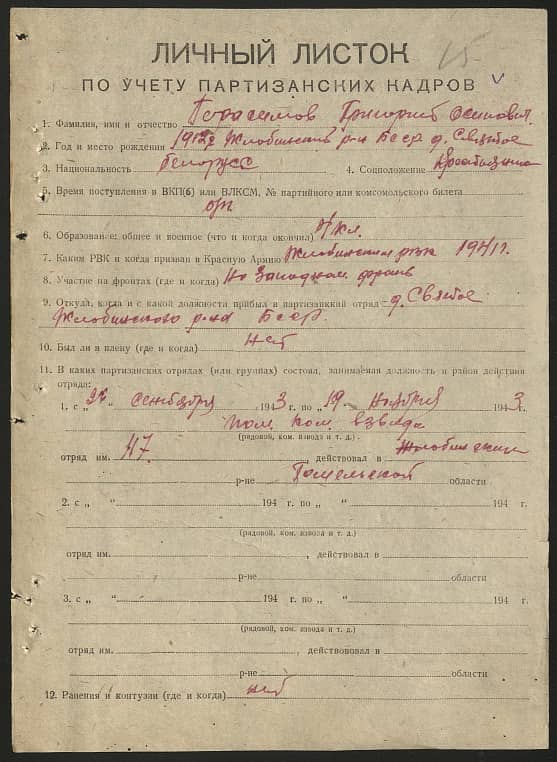 15
ЛИЧНЫЙ ЛИСТОК
ПО УЧЕТУ ПАРТИЗАНСКИХ КАДРОВ
1. Фамилия, имя и отчество Герасимов Григорий Осипович
2. Год и место рождения 1912 г Жлобинский р-н БССР д. Святое
3. Национальность Белорусс 4. Соцположение Крестьянин
5. Время поступления в ВКП(б) или ВЛКСМ, № партийного или комсомольского билета
б/п
6. Образование: общее и военное (что и когда окончил) кл.
7. Каким РВК и когда призван в Красную Армию Жлобинским рвк 1941 г.
8. Участие на фронтах (где и когда) На Западном фронте
9. Откуда, когда и с какой должности прибыл в партизанский отряд д. Святое
Жлобинского р-на БССР.
10. Был ли в плену (где и когда) нет
11. В каких партизанских отрядах (или группах) состоял, занимаемая должность и район действия
отряда:
1. с „ “ сентября 1943 г. по „19“ ноября 1943 г.
пом. ком. взвода
(рядовой, ком. взвода и т. д.)
отряд им. 47. действовал в Жлобинском
р-не Гомельской области
2. с „ “ 194 г. по „ “ 194 г.
(рядовой, ком. взвода и т. д.)
отряд им. , действовал в
р-не области
3. с „ “ 194 г. по „ “ 194 г.
(рядовой, ком. взвода и т. д.)
отряд им. , действовал в
р-не области
12. Ранения и контузии (где и когда) нет